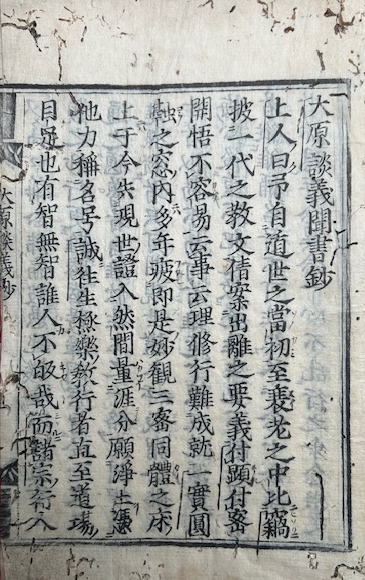 大原談義聞書鈔
上人曰予自遁世之當初至衰老之中比竊
披一代之教文倩案出離之要義付顯付密
開悟不容易云事云理修行難成就一實圓
融之窓内多年疲即是妙觀三密同體之床
上于今失現世證入然間量涯分願淨土憑
他力稱名号誠往生極樂教行者直至道場
目足也有智無智誰人不皈哉而諸宗行人
大原談義鈔